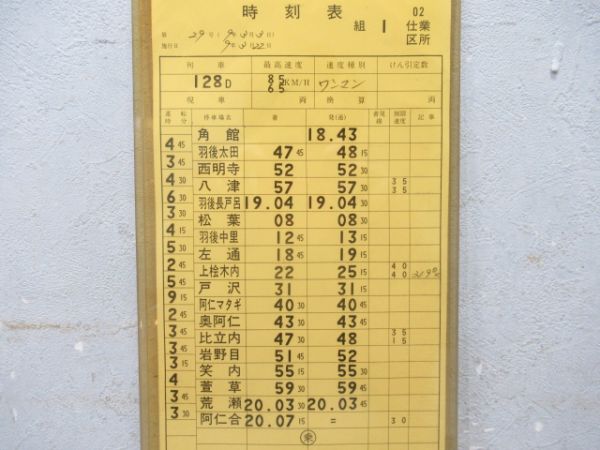 時刻表
組 1 02 仕業
区所
第 29号 (92年3月3日)
施行日 92年3月22日
列車 最高速度 速度種別 けん引定数
128D 85 65 KM/H ワンマン
現車 両 換算 両
運転時分 停車場名 着 発(通) 着発線 制限速度 記事
角館 18.43
4 45
羽後太田 47 45 48 15
3 45
西明寺 52 52 30
4 30
八津 57 57 30 35 35
6 30
羽後長戸呂 19.04 19.04 30
3 30
松葉 08 08 30
4 15
羽後中里 12 45 13 15
5 30
左通 18 45 19 15
2 45
上桧木内 22 25 15 40 40
5 45
戸沢 31 31 15
9 15
阿仁マタギ 40 30 40 45
2 45
奥阿仁 43 30 43 45
3 45
比立内 47 30 48 35 15
3 45
岩野目 51 45 52
3 15
笑内 55 15 55 30
4
萱草 59 30 59 45
3 45
荒瀬 20.03 30 20.03 45
3 30
阿仁合 20.07 15 = 30
乗